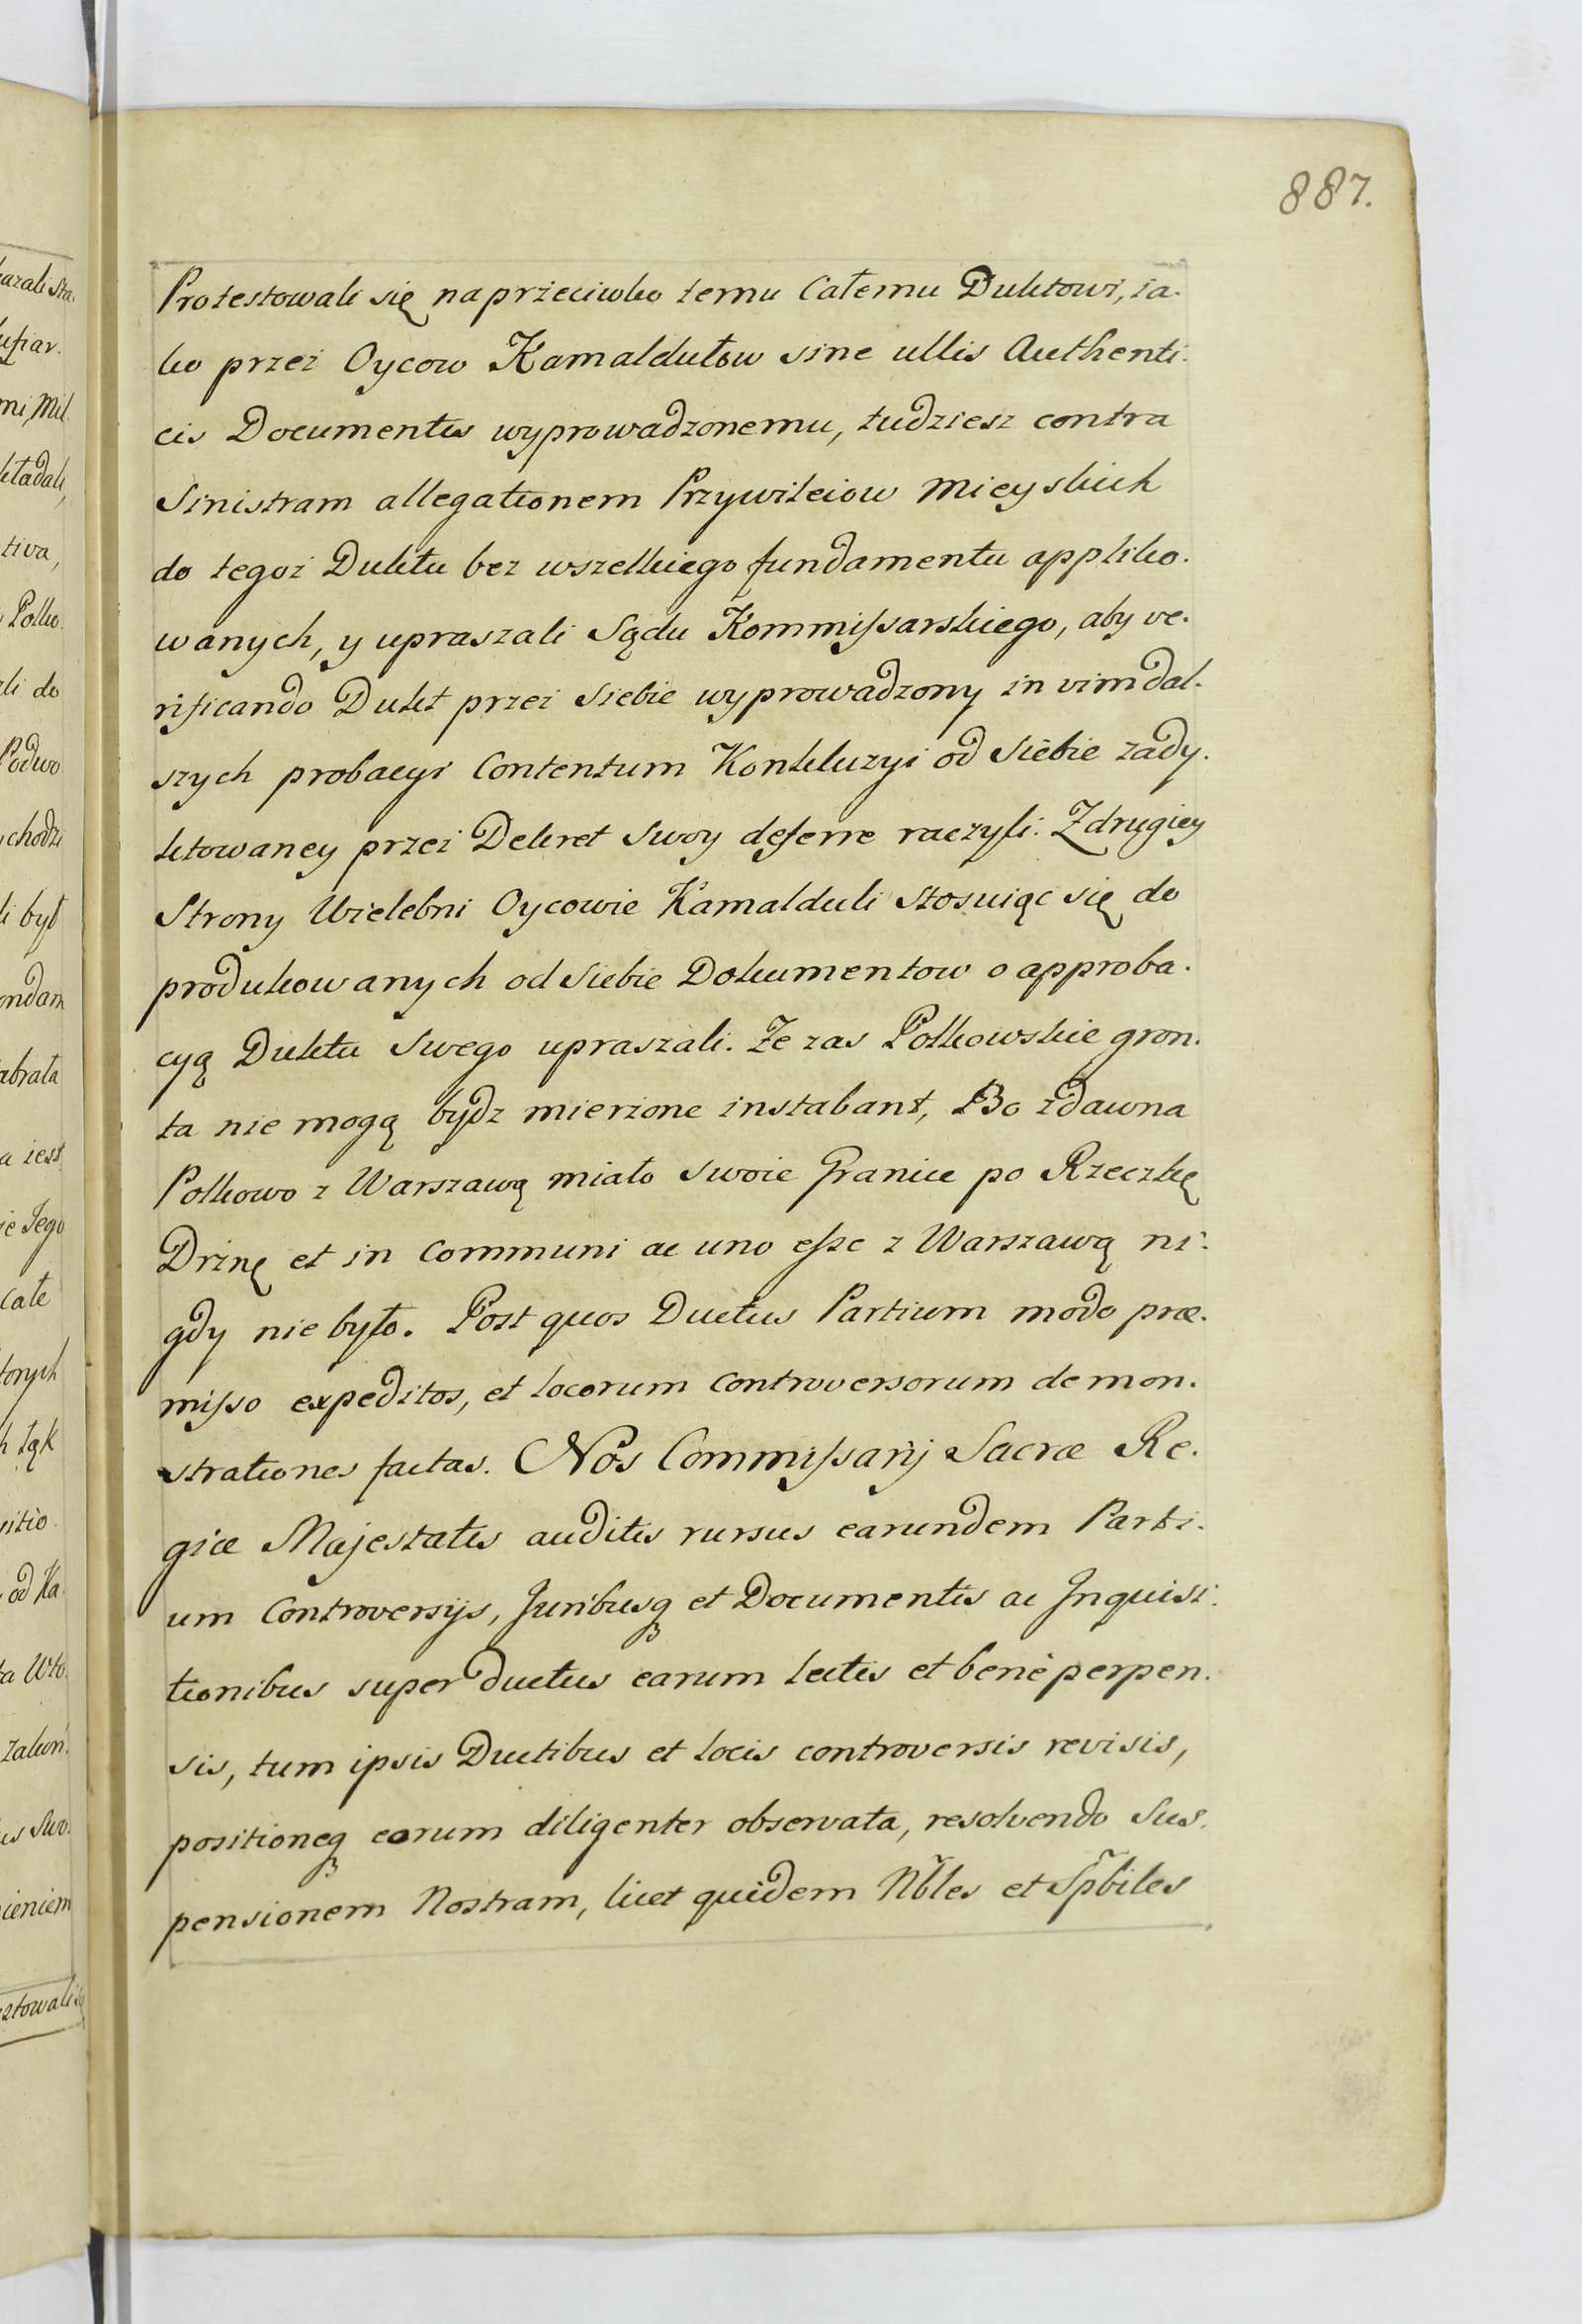 887.
Protestowali się naprzeciwko temu Całemu Duktowi, ia-
ko przez Oycow Kamaldułow sine ullis Authenti-
cis Documentis wyprowadzonemu, tudziesz contra
Sinistram allegationem Przywileiow Mieyskich
do tegoż Duktu bez wszelkiego fundamentu appliko-
wanych, y upraszali Sądu Kommissarskiego, aby ve-
rificando Dukt przez Siebie wyprowadzony in vim dal-
szych probacyi Contentum Konkluzyi od Siebie zady-
ktowaney przez Dekret Swoy deferre raczyli. Z drugiey
Strony Wielebni Oycowie Kamalduli Stosuiąc się do
produkowanych od Siebie Dokumentow o approba-
cyą Duktu Swego upraszali. Że zas Polkowskie gron-
ta nie mogą bydz mierzone instabant, Bo zdawna
Polkowo z Warszawą miało Swoie Granice po Rzeczkę
Drżnę et in Communi ac uno esse z Warszawą ni-
gdy nie było. Post quos Ductus Partium modo præ-
misso expeditos, et locorum controversorum demon-
strationes factas. Nos Commissarij Sacræ Re-
giæ Majestatis auditis rursus earundem Parti-
um Controversijs, Juribusq et Documentis ac Inquisi-
tionibus super ductus earum lectis et benè perpen-
sis, tum ipsis Ductibus et locis controversis revisis,
positioneq eorum diligenter observata, resolvendo Sus-
pensionem Nostram, licet quidem Nbles et Spbiles